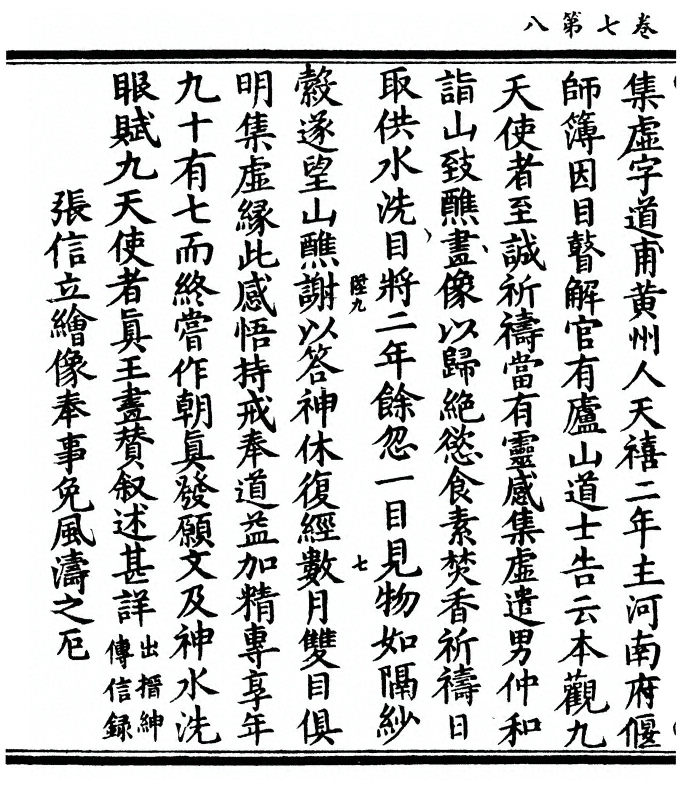 卷七第八
集虛字道甫黃州人天禧二年主河南府偃
師簿因目瞽解官有廬山道士告云本觀九
天使者至誠祈禱當有靈感集虛遣男仲和
詣山致醮畫像以歸絕慾食素焚香祈禱日
取供水洗目將二年餘忽一目見物如隔紗
陞九
七
縠遂望山醮謝以答神休復經數月雙目俱
明集虛緣此感悟持戒奉道益加精專享年
九十有七而終嘗作朝眞發願文及神水洗
眼賦九天使者眞王畫賛叙述甚詳
出搢紳
傳信録
張信立繪像奉事免風濤之厄